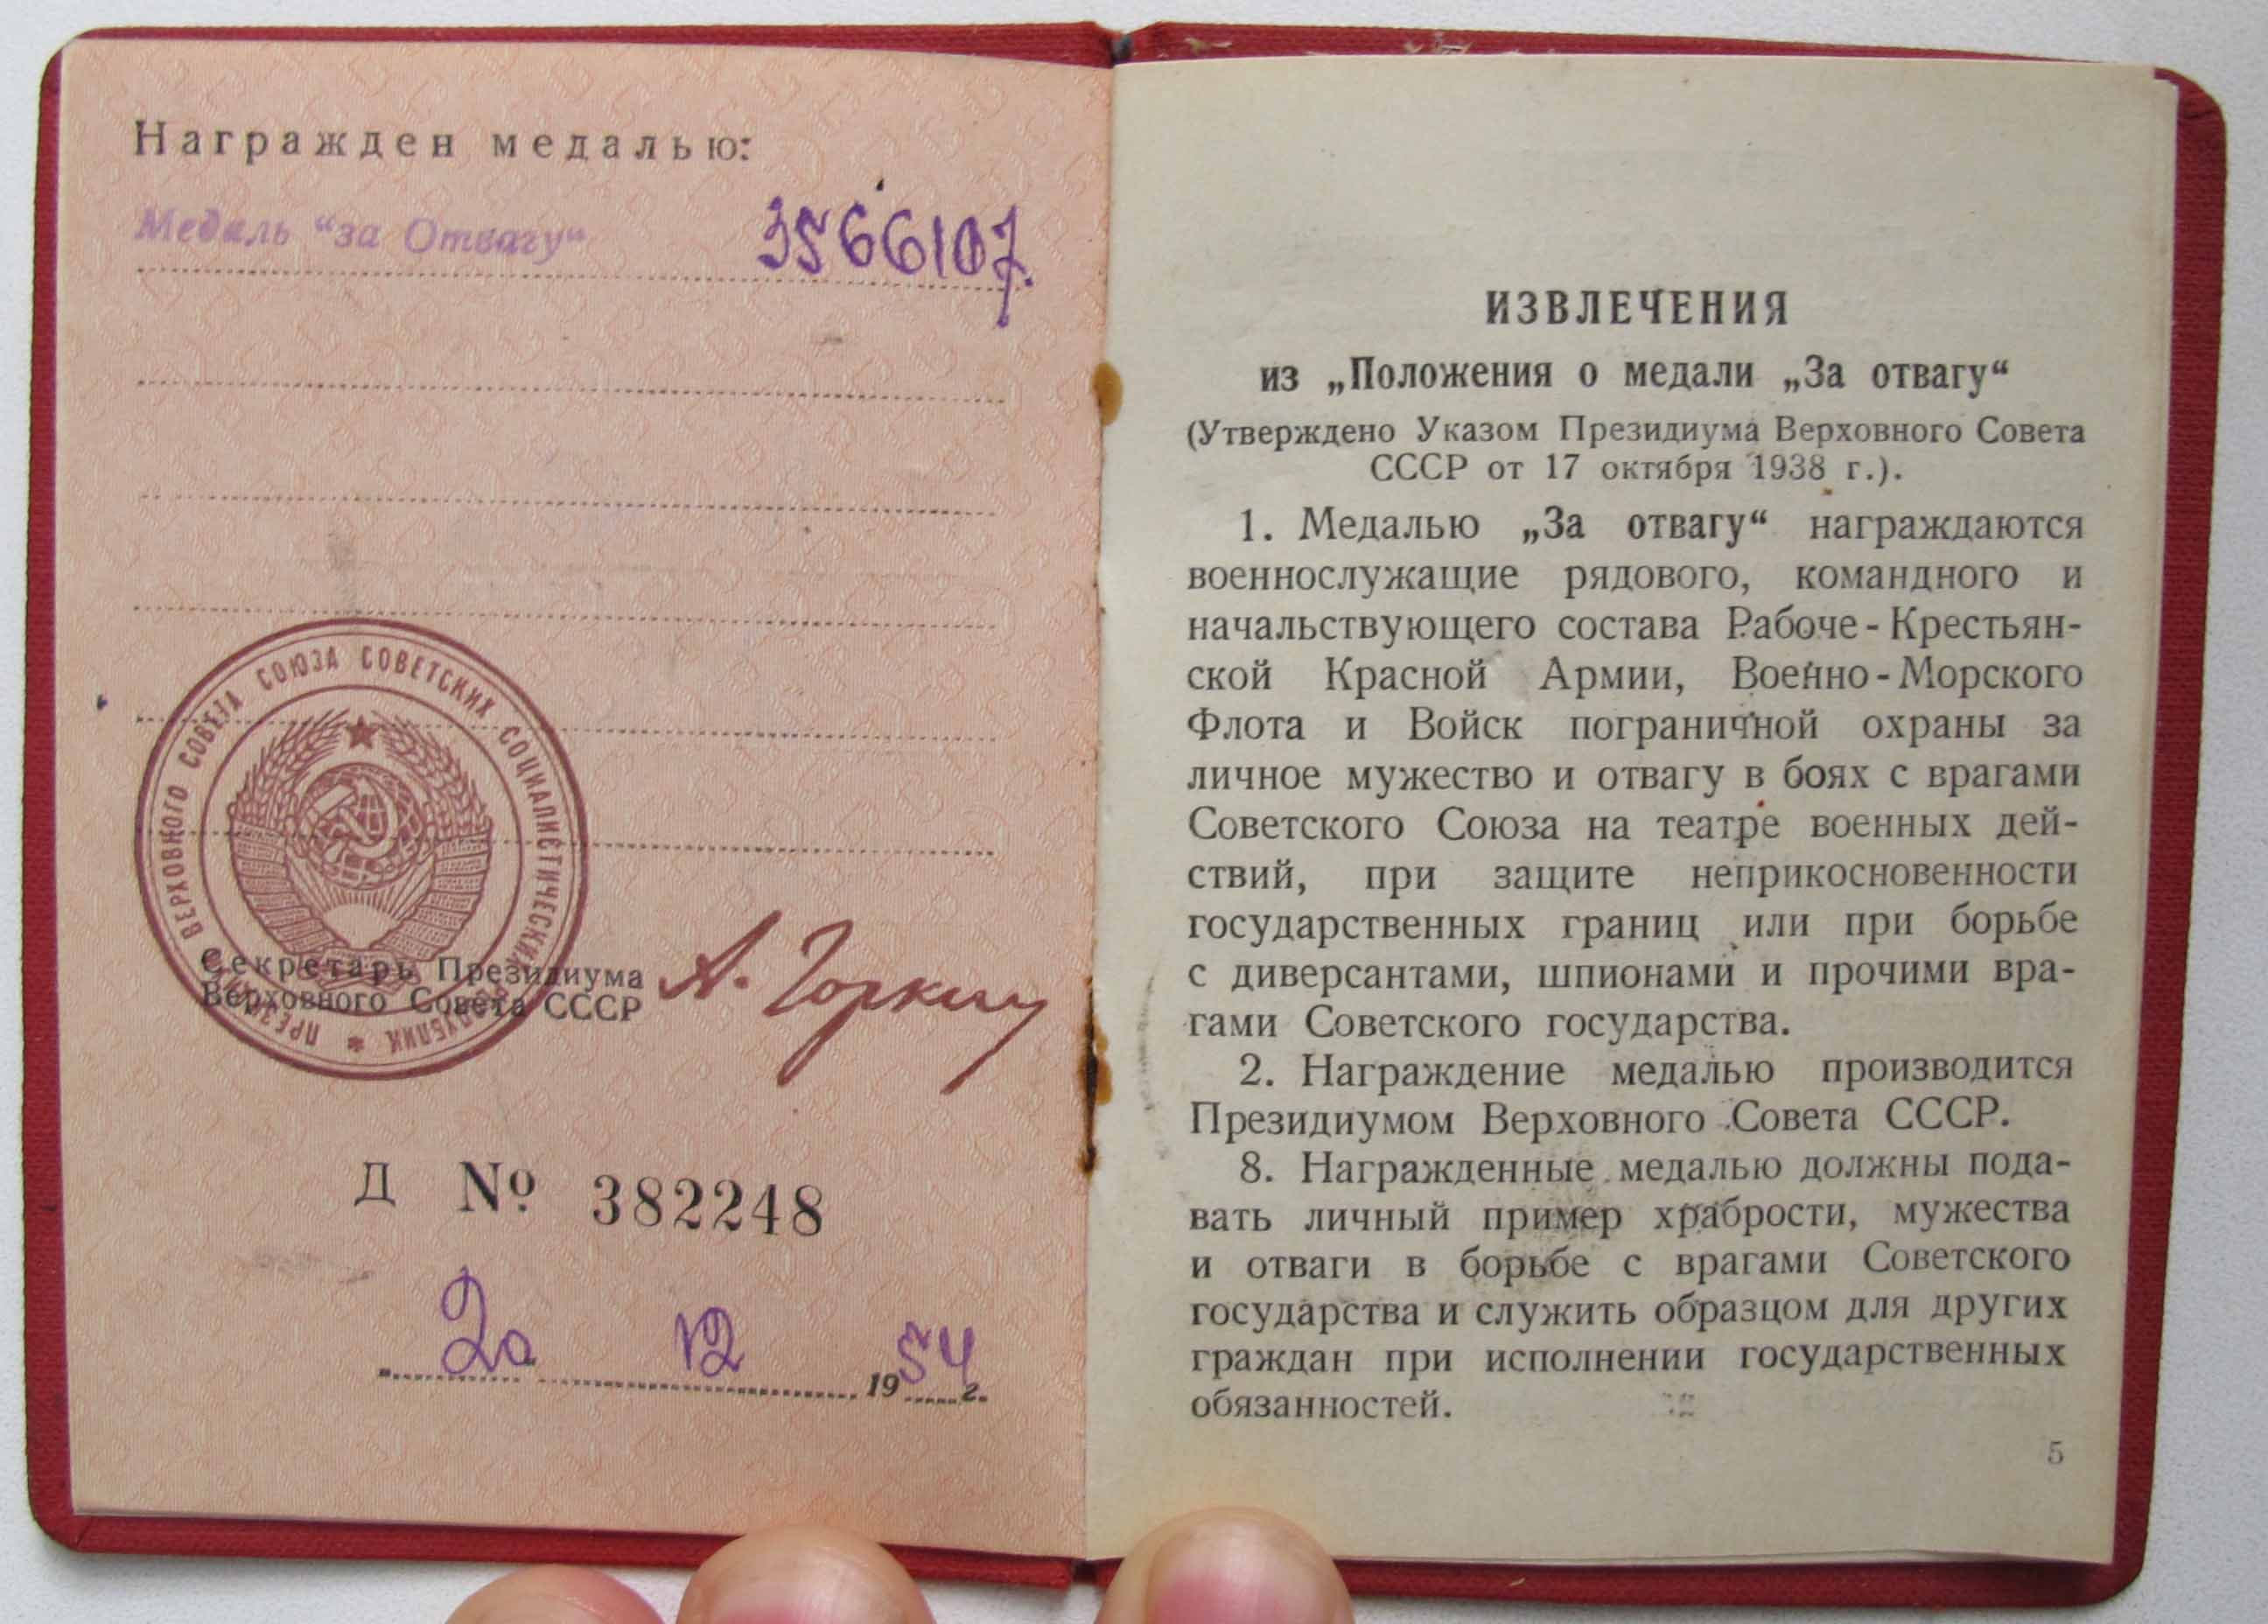 Награжден медалью:
Медаль “за Отвагу“ 3566107.
ПРЕЗИДИУМ ВЕРХОВНОГО СОВЕТА СОЮЗА СОВЕТСКИХ СОЦИАЛИСТИЧЕСКИХ РЕСПУБЛИК *
Секретарь Президиума
Верховного Совета СССР
А. Горкин
Д № 382248
20 12 1954 г.
ИЗВЛЕЧЕНИЯ
из „Положения о медали „За отвагу“
(Утверждено Указом Президиума Верховного Совета
СССР от 17 октября 1938 г.).
1. Медалью „За отвагу“ награждаются
военнослужащие рядового, командного и
начальствующего состава Рабоче-Крестьян-
ской Красной Армии, Военно-Морского
Флота и Войск пограничной охраны за
личное мужество и отвагу в боях с врагами
Советского Союза на театре военных дей-
ствий, при защите неприкосновенности
государственных границ или при борьбе
с диверсантами, шпионами и прочими вра-
гами Советского государства.
2. Награждение медалью производится
Президиумом Верховного Совета СССР.
8. Награжденные медалью должны пода-
вать личный пример храбрости, мужества
и отваги в борьбе с врагами Советского
государства и служить образцом для других
граждан при исполнении государственных
обязанностей.
5